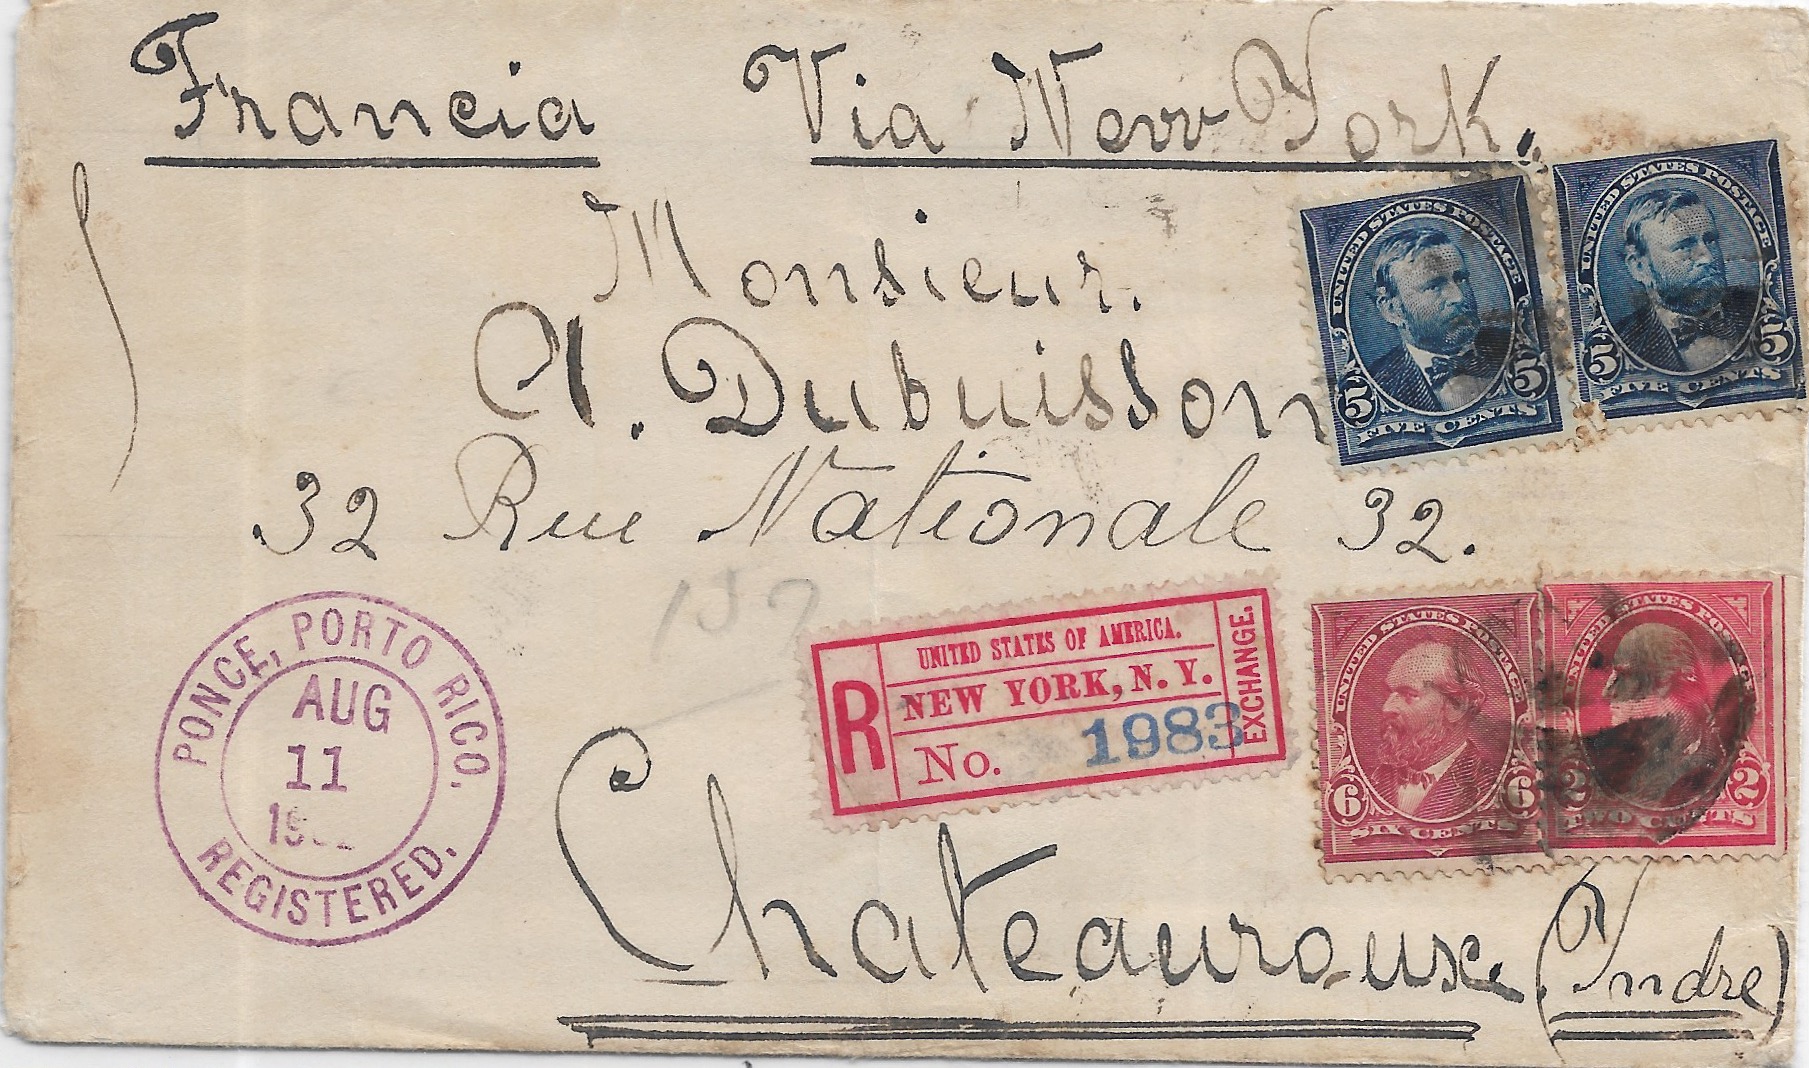 Francia Via New York.
Monsieur.
A. Dubuisson
32 Rue Nationale 32.
Chateauroux (Indre)
PONCE, PORTO RICO.
AUG
11
REGISTERED.
157
R
UNITED STATES OF AMERICA.
NEW YORK, N. Y.
No. 1983
EXCHANGE.
UNITED STATES POSTAGE
5 5
FIVE CENTS
UNITED STATES POSTAGE
5 5
FIVE CENTS
UNITED STATES POSTAGE
6 6
SIX CENTS
UNITED STATES POSTAGE
2 2
TWO CENTS